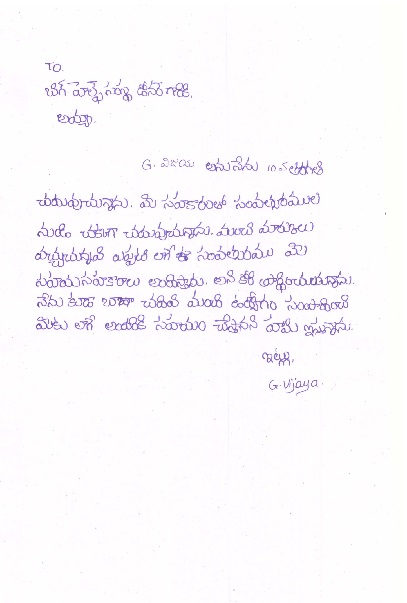 TO.
బిగ్ హెల్ప్ సంస్థ డీనర్ గారికి,
అయ్యా,
G. విజయ అను నేను 10వ తరగతి
చదువుచున్నాను. మీ సహకారంతో సంవత్సరముల
నుండి చక్కగా చదువుచున్నాను. మంచి మార్కులు
వచ్చుచున్నవి ఎప్పటి లాగే ఈ సంవత్సరము మీ
సహాయసహకారాలు అందిస్తారు. అని కోరి ప్రార్థించుచున్నాను.
నేను కూడా బాగా చదివి మంచి ఉద్యోగం సంపాదించి
మీకు లాగే అందరికి సహాయం చేస్తానని హామి ఇస్తున్నాను.
ఇట్లు,
G. Vijaya.